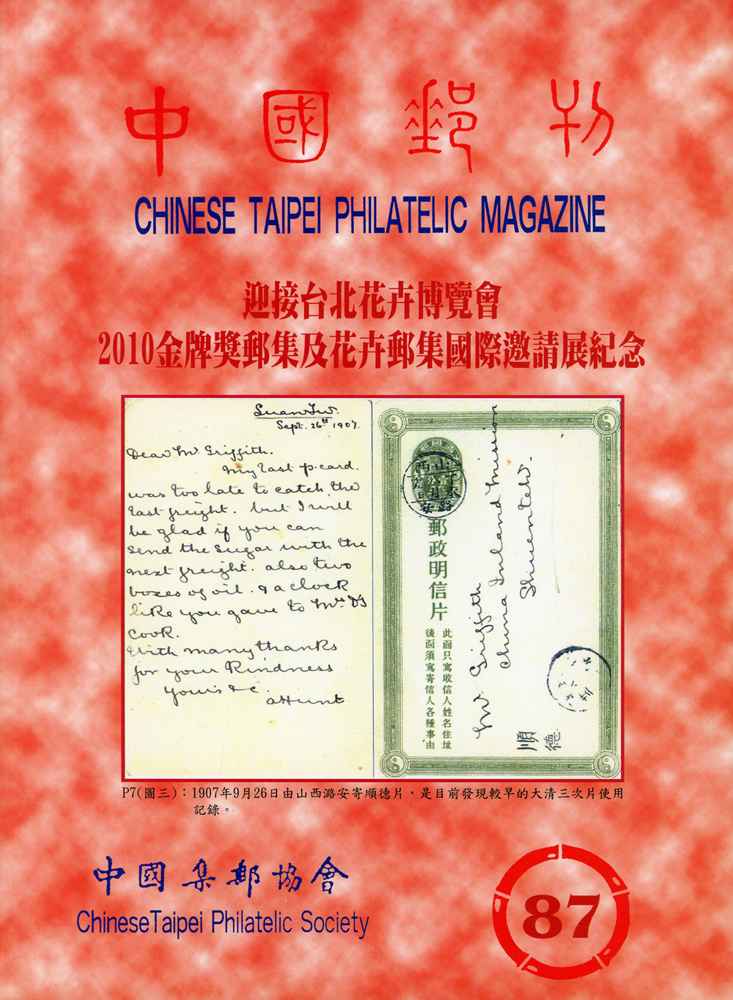 中國郵刊
CHINESE TAIPEI PHILATELIC MAGAZINE
迎接台北花卉博覽會
2010金牌獎郵集及花卉郵集國際邀請展紀念
Sept. 26th 1907.
Dear Mr Griffith.
My last p.card.
was too late to catch the
last freight. but I will
be glad if you can
send the sugar with the
next freight. also two
boxes of oil. & a clock
like you gave to Mrs D's
cook.
With many thanks
for your kindness
yours &c.
a Hunt
郵政明信片
此面只寫收信人姓名住址
後面須寫寄信人各種事由
Mr Griffith
China Inland Mission
Shuenteh.
順德
P7(圖三)：1907年9月26日由山西潞安寄順德片，是目前發現較早的大清三次片使用
記錄。
中國集郵協會
ChineseTaipei Philatelic Society
87